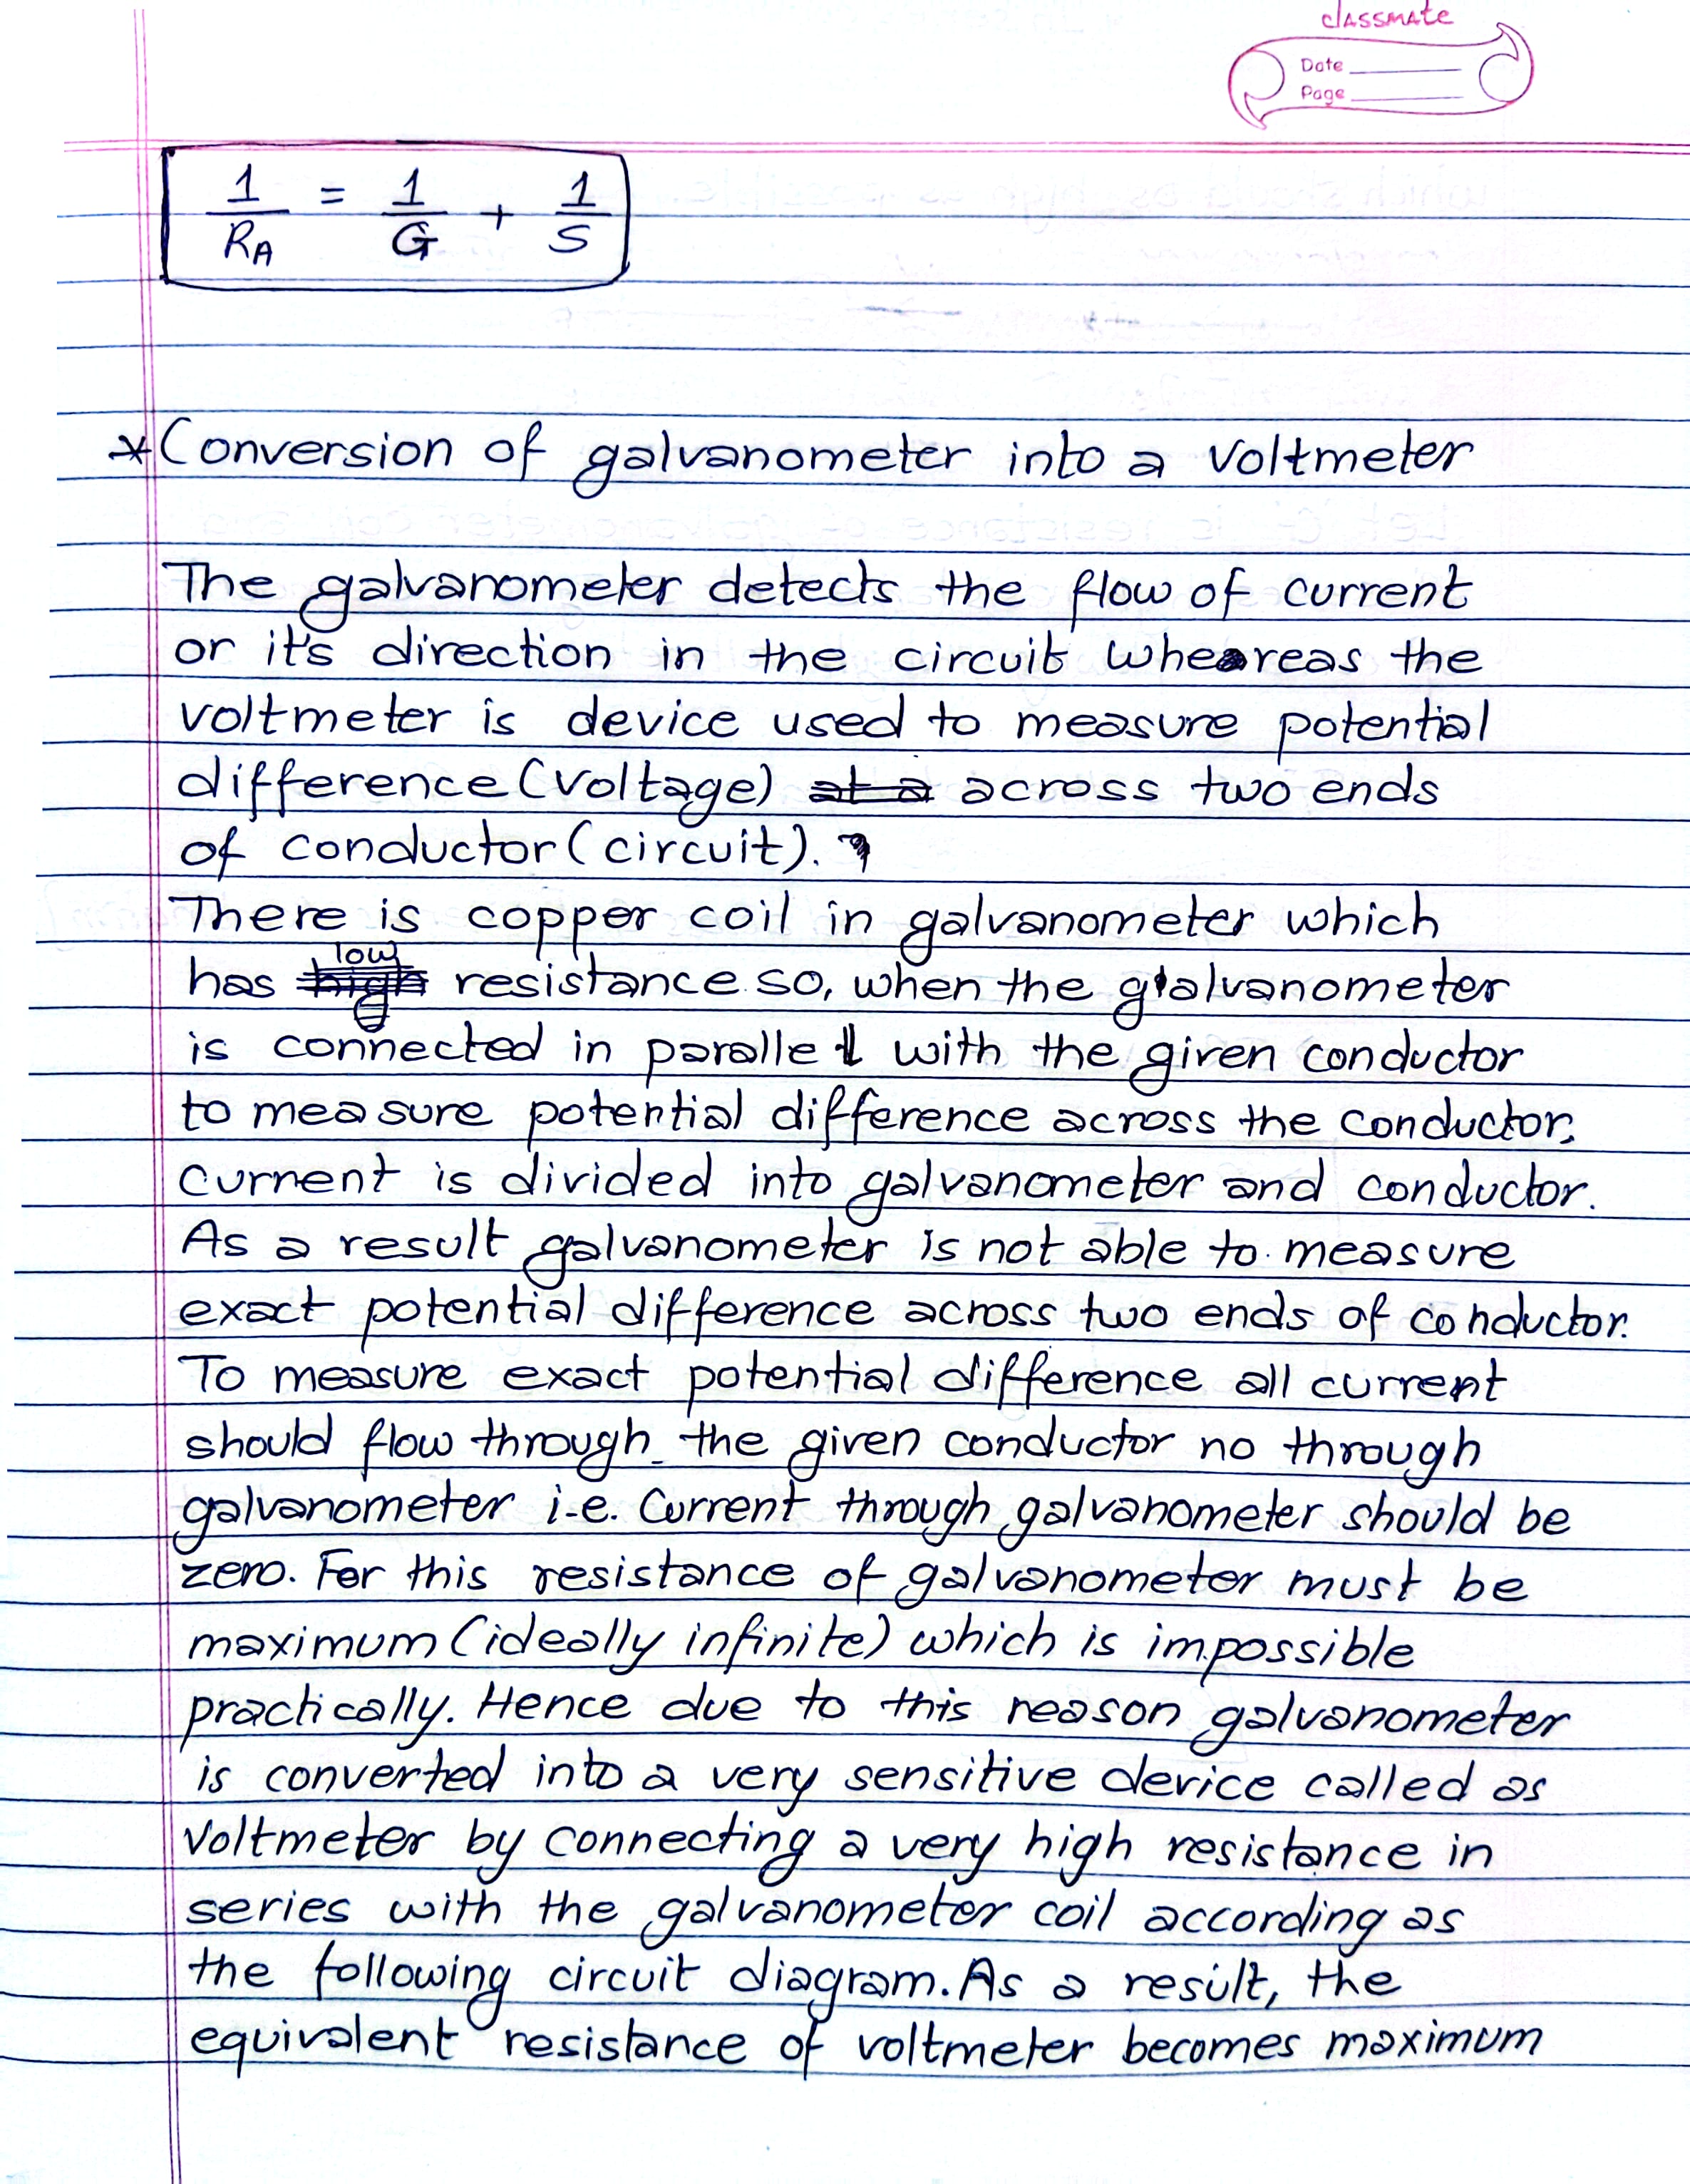 classmate
Date
Page
1/RA = 1/G + 1/S
*Conversion of galvanometer into a voltmeter
The galvanometer detects the flow of current
or it's direction in the circuit wheareas the
voltmeter is device used to measure potential
difference (voltage) at a across two ends
of conductor (circuit).
There is copper coil in galvanometer which
low
has high resistance so, when the galvanometer
is connected in parallel with the given conductor
to measure potential difference across the conductor,
current is divided into galvanometer and conductor.
As a result galvanometer is not able to measure
exact potential difference across two ends of conductor.
To measure exact potential difference all current
should flow through the given conductor no through
galvanometer i.e. Current through galvanometer should be
zero. For this resistance of galvanometer must be
maximum (ideally infinite) which is impossible
practically. Hence due to this reason galvanometer
is converted into a very sensitive device called as
Voltmeter by connecting a very high resistance in
series with the galvanometer coil according as
the following circuit diagram. As a result, the
equivalent resistance of voltmeter becomes maximum